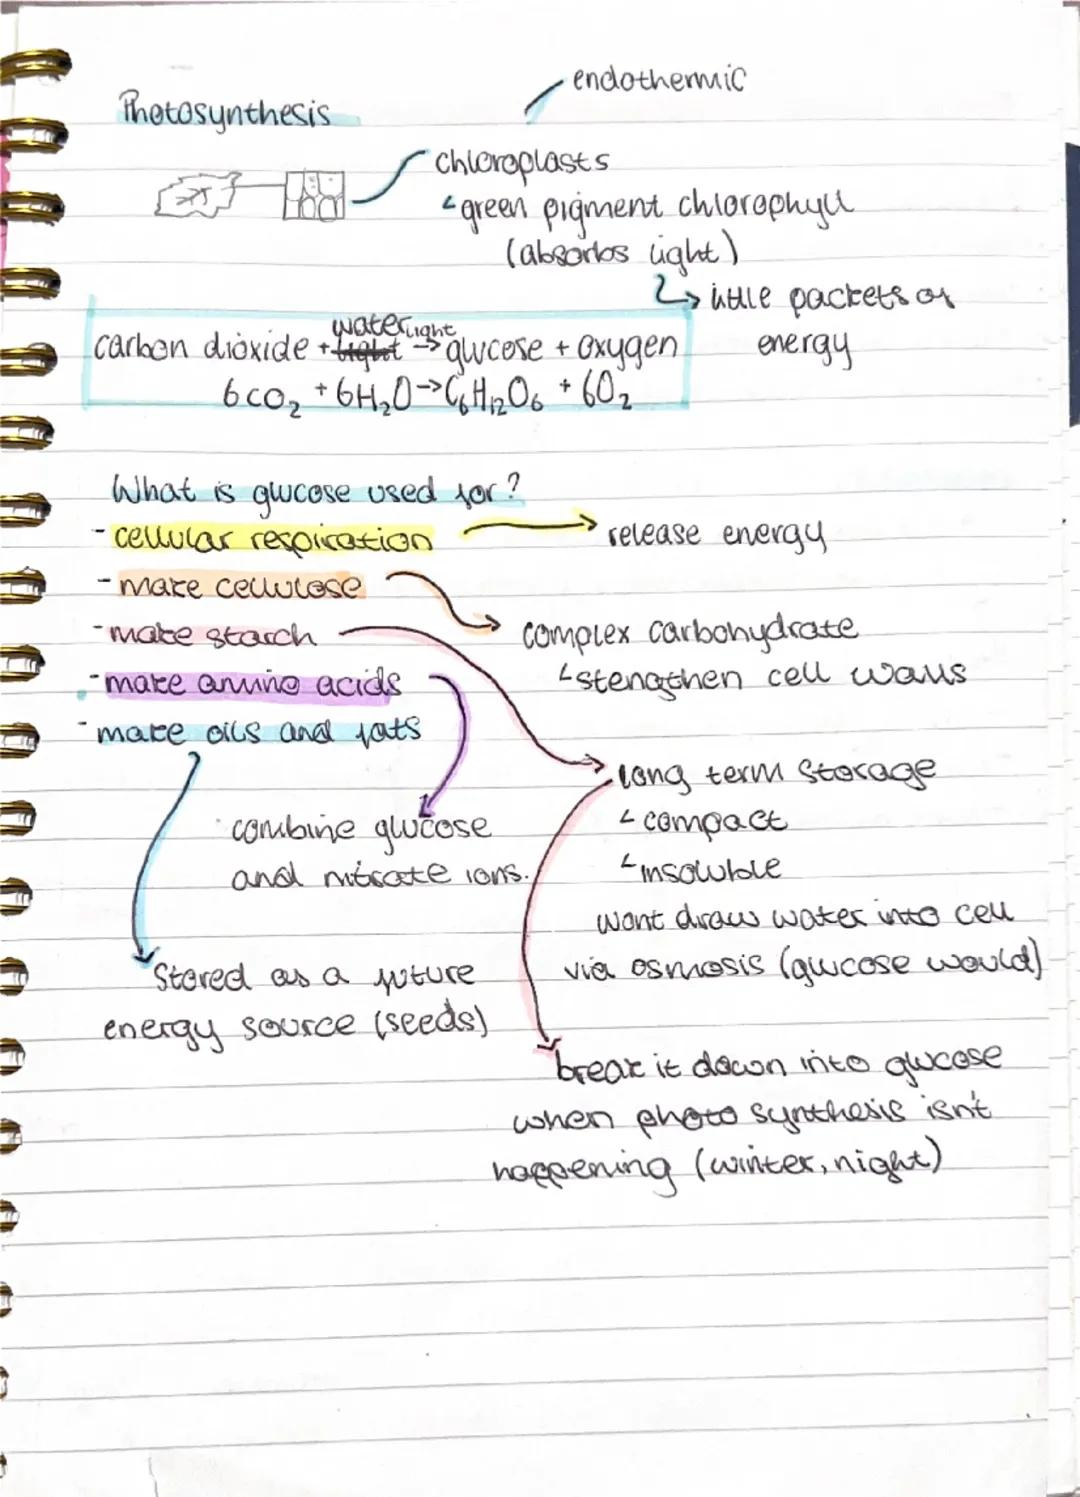 endothermic
Photosynthesis
chloroplasts
green pigment chlorophyll
(absorbs light)
little packets of
energy
water light
carbon dioxide + light → glucose + oxygen
6CO₂ + 6H₂O → C₆H₁₂O₆ + 6O₂
What is glucose used for?
- cellular respiration → release energy
- make cellulose
- make starch
complex carbohydrate
stengthen cell walls
- make amino acids
- make oils and fats
long term storage
compact
insoluble
combine glucose
and nitrate ions.
wont draw water into cell
via osmosis (glucose would)
Stored as a future
energy source (seeds)
break it down into glucose
when photosynthesis isn't
happening (winter, night)